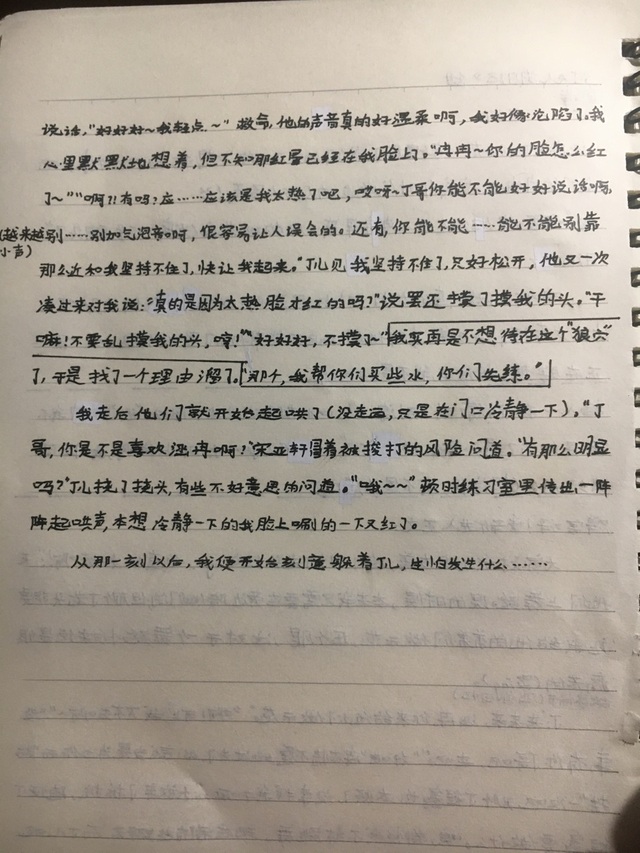 说话，"好好好~我轻点~"救命，他的声音真的好温柔啊，我好像沦陷了。我
心里默默地想着，但不知那红晕已经在我脸上。"冉冉~你的脸怎么红
了~""啊？！有吗？应……应该是我太热了吧，哎呀~丁哥你能不能好好说话啊，
(越来越小声)别……别加气泡音啊，很容易让人误会的。还有，你能不能……能不能别靠
那么近和我坚持不住了，快让我起来。"丁儿见我坚持不住了，只好松开，他又一次
凑过来对我说："真的是因为太热脸才红的吗？"说罢还摸了摸我的头。"干
嘛！不要乱摸我的头，哼！""好好好，不摸了~"我实再是不想待在这个"狼穴"
了，于是找了一个理由溜了。"那个，我帮你们买些水，你们先练。"
我走后他们就开始起哄了(没走远，只是在门口冷静一下)，"丁
哥，你是不是喜欢冉啊？"宋亚轩冒着被挨打的风险问道。"有那么明显
吗？"丁儿挠了挠头，有些不好意思的问道。"哦~~"顿时练习室里传出一阵
阵起哄声，本想冷静一下的我脸上唰的一下又红了。
从那一刻以后，我便开始刻意躲着丁儿，生怕发生什么……